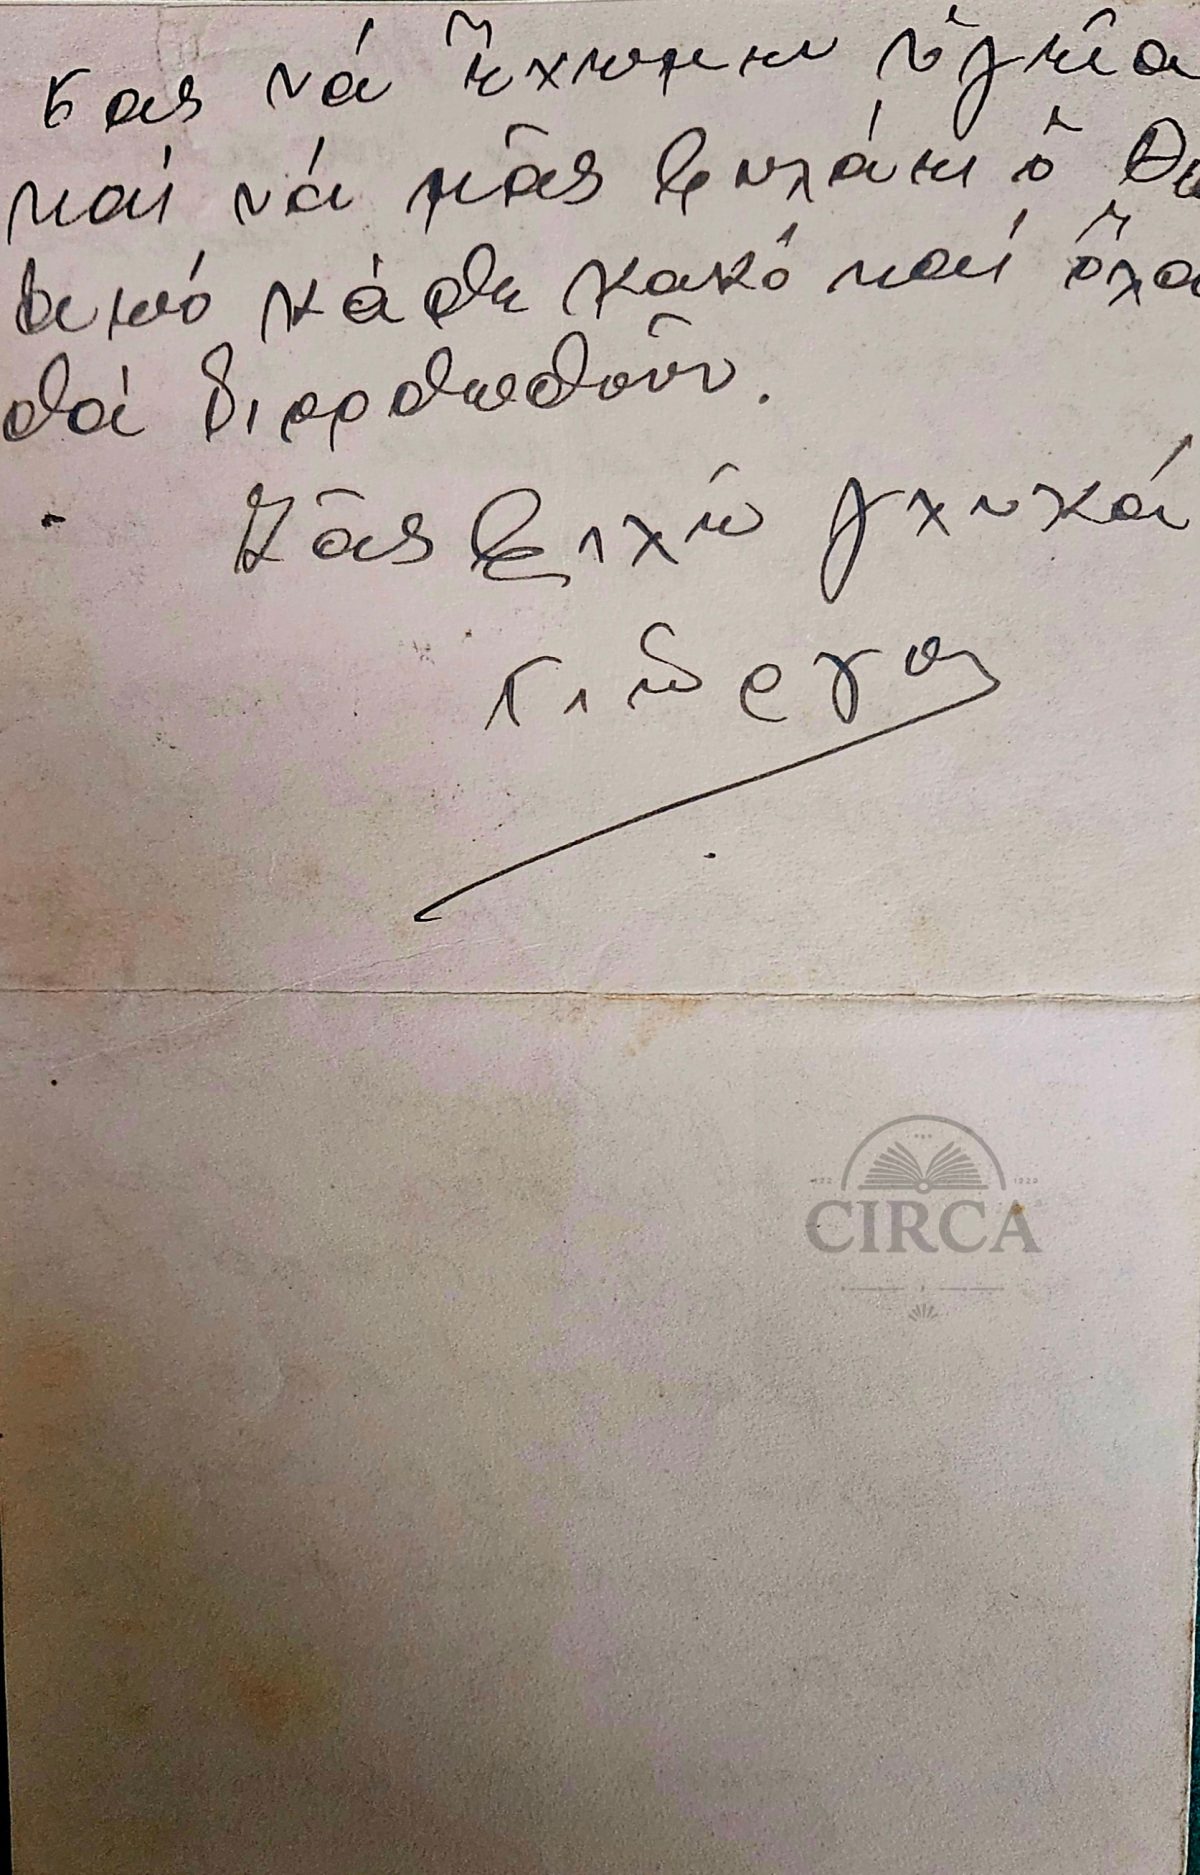 σας νά ἔχωμεν ὑγεία
καί νά μᾶς φυλάει ὁ Θε
ἀπό κάθε κακό καί ὅλα
θά διορθωθοῦν.
Σᾶς φιλῶ γλυκά
Γιῶργος
CIRCA